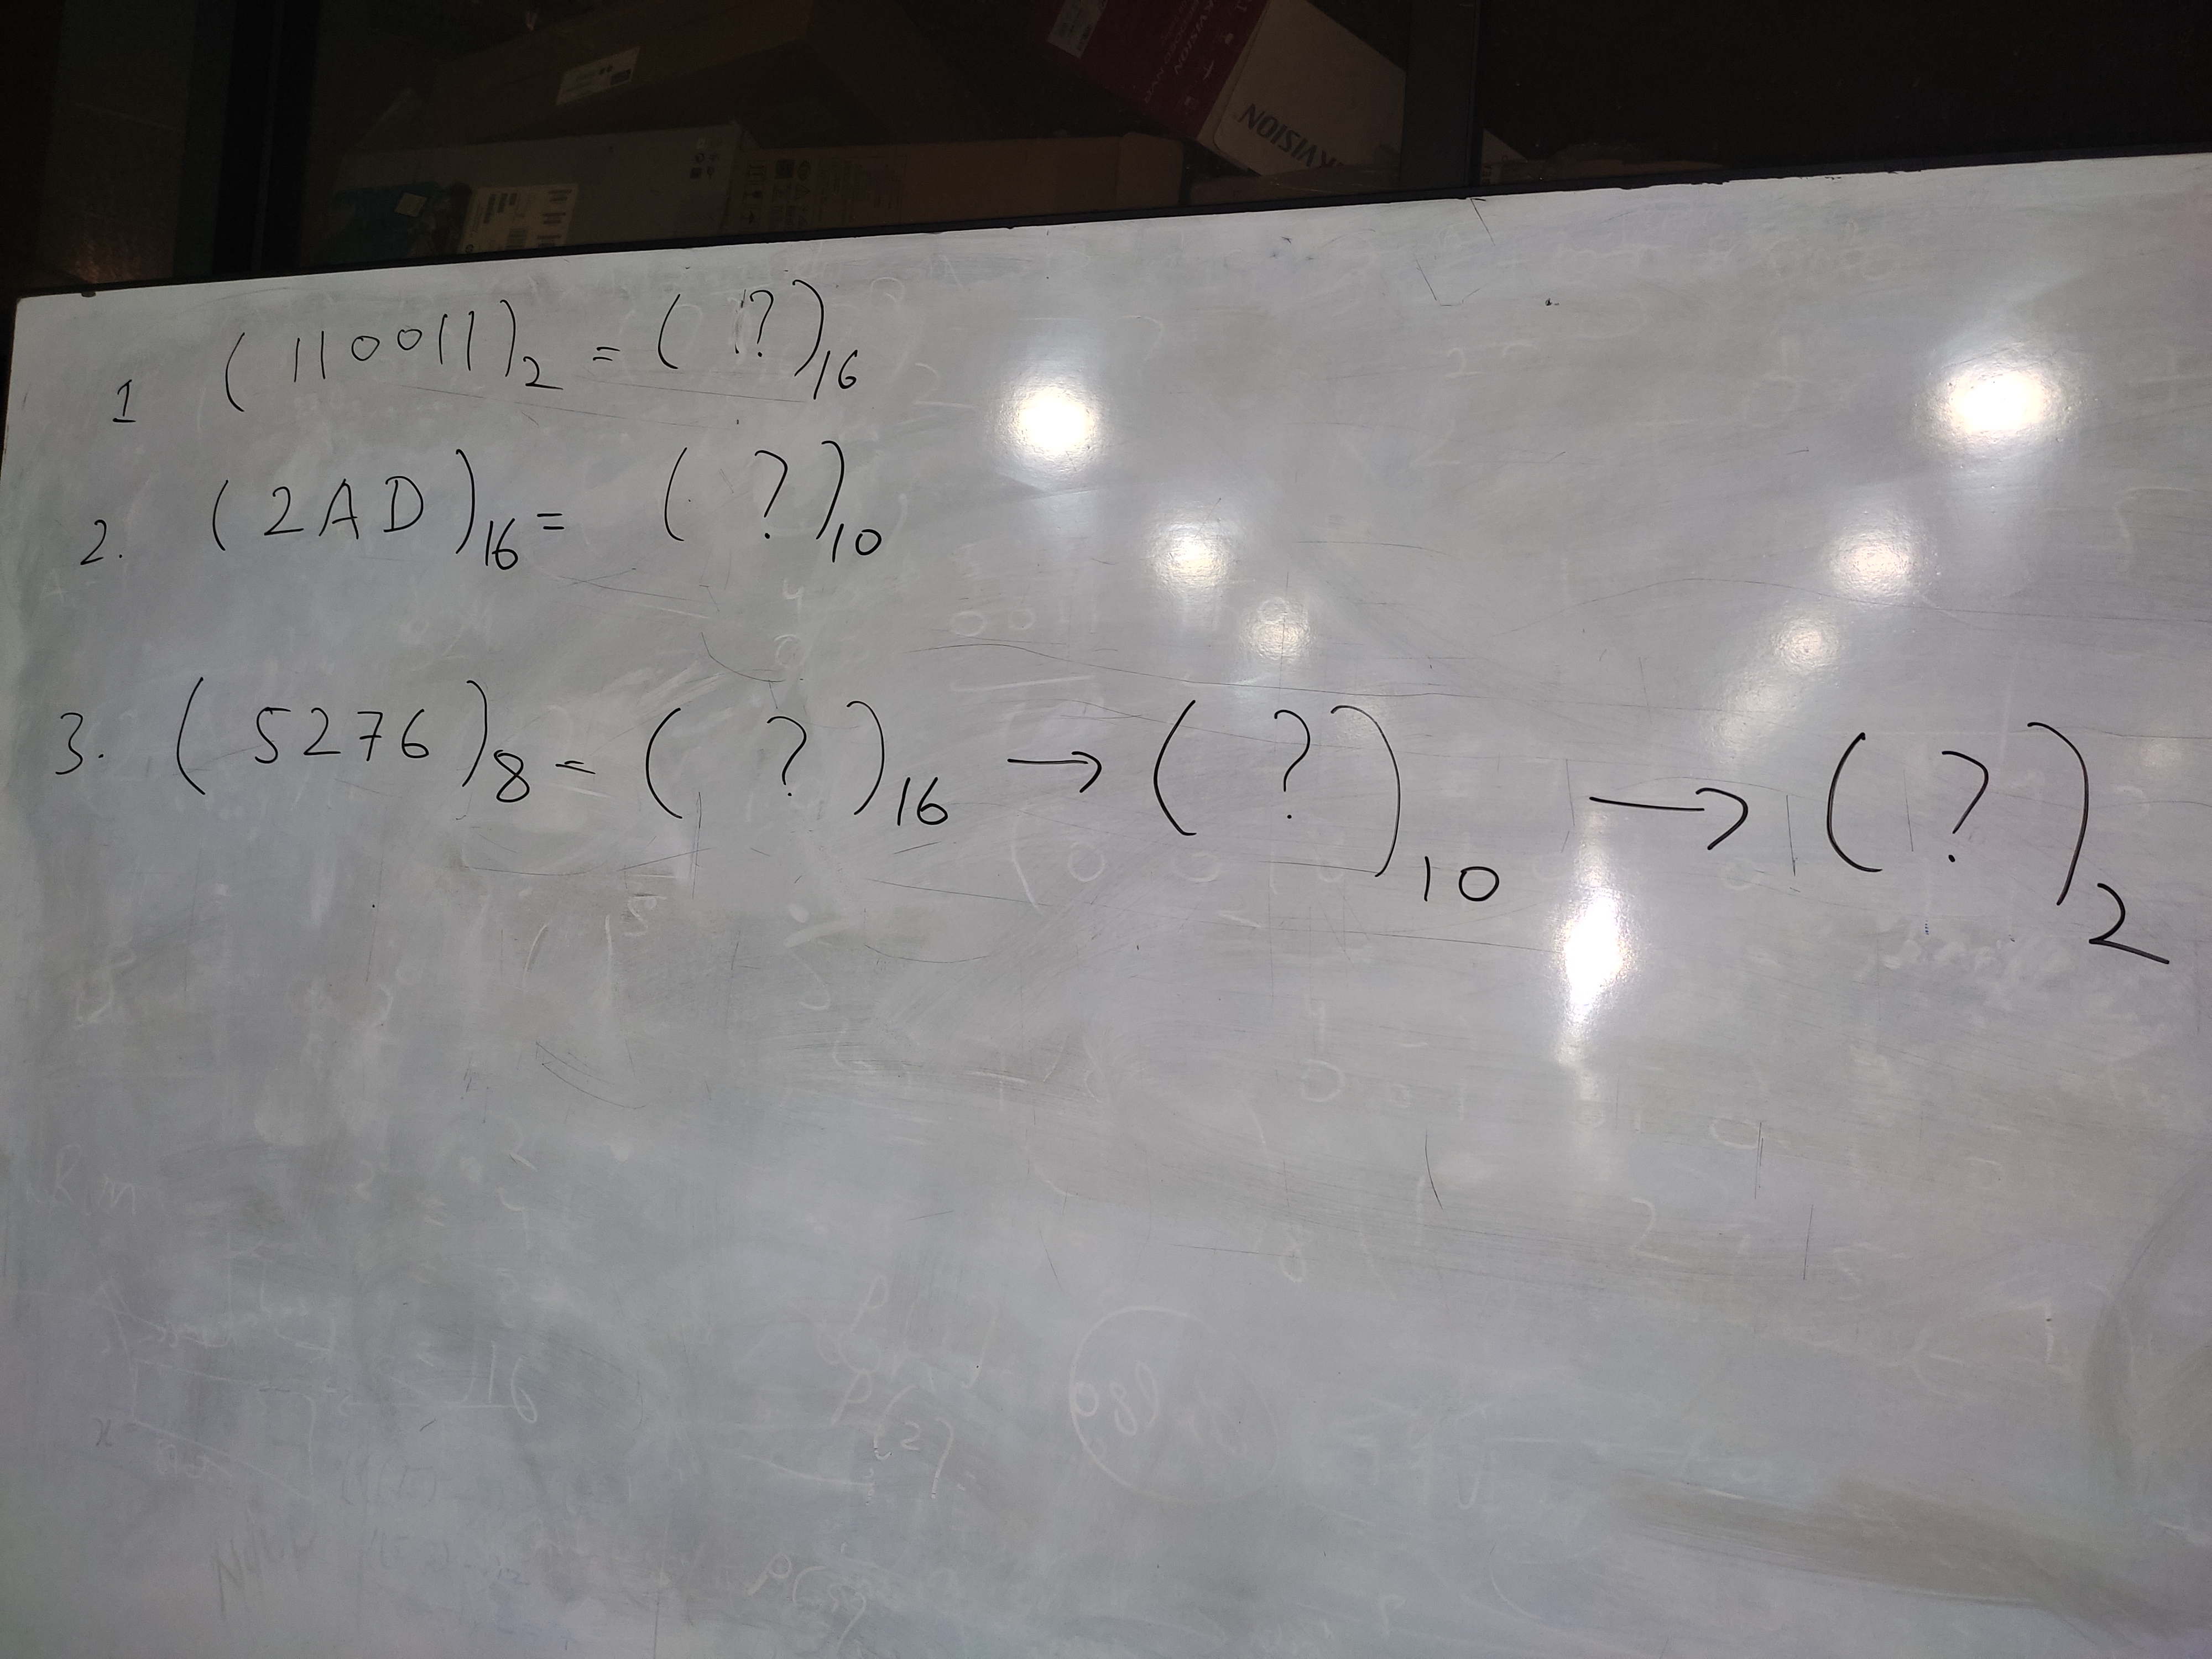 KVISION
1 (110011)₂ = (?)₁₆
2. (2AD)₁₆ = (?)₁₀
3. (5276)₈ = (?)₁₆ → (?)₁₀ → (?)₂